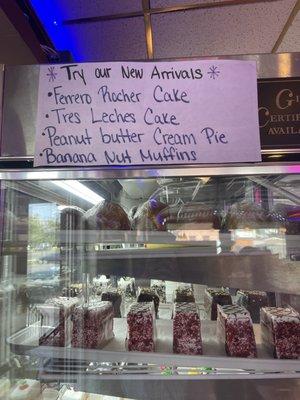 * Try our New Arrivals *
• Ferrero Rocher Cake
• Tres Leches Cake
• Peanut butter Cream Pie
• Banana Nut Muffins
AVAILA